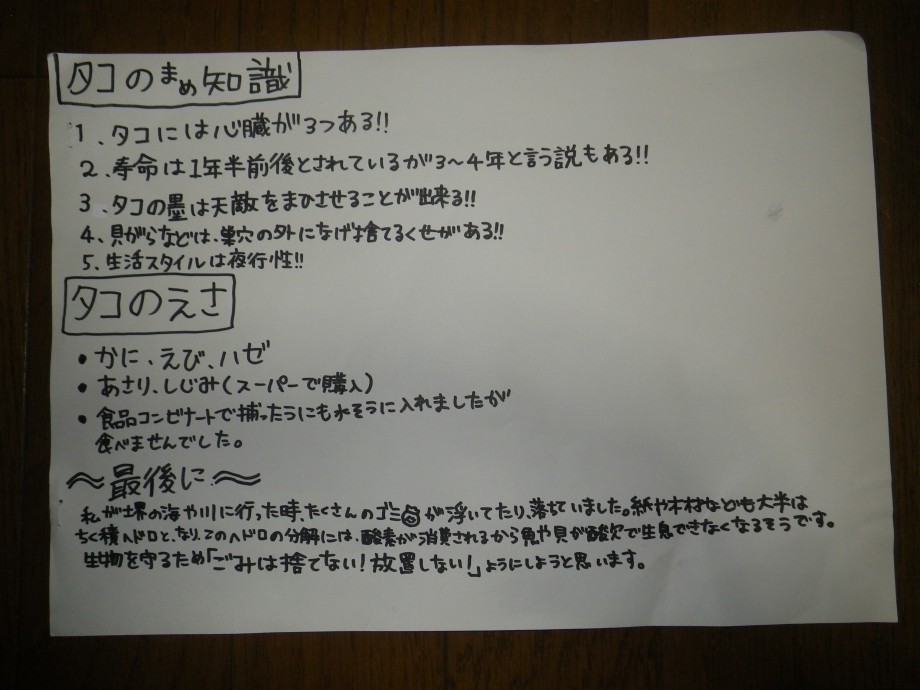 タコのまめ知識
1、タコには心臓が3つある!!
2、寿命は1年半前後とされているが3〜4年と言う説もある!!
3、タコの墨は天敵をまひさせることが出来る!!
4、貝がらなどは、巣穴の外になげ捨てるくせがある!!
5、生活スタイルは夜行性!!
タコのえさ
• かに、えび、ハゼ
• あさり、しじみ(スーパーで購入)
• 食品コンビナートで捕ったうにも水そうに入れましたが
食べませんでした。
〜最後に〜
私が堺の海や川に行った時、たくさんのゴミが浮いてたり、落ちていました。紙や木材なども大半は
ちく積ヘドロと、なり、このヘドロの分解には、酸素が消費されるから魚や貝が酸欠で生息できなくなるそうです。
生物を守るため「ごみは捨てない!放置しない!」ようにしようと思います。